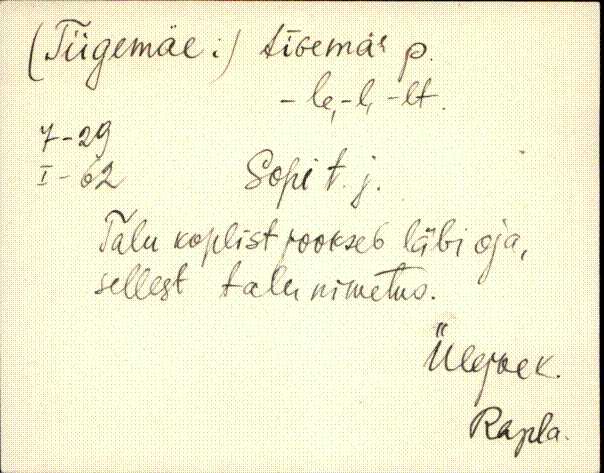 (Tiigemäe:) tīɢemäᵉ p.
-le, -l, -lt.
7-29
I-62
Sopi t. j.
Talu koplist jookseb läbi oja,
sellest talu nimetus.
Ülejõe k.
Rapla.